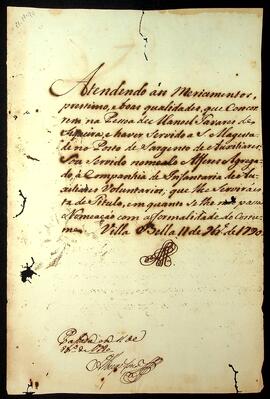 Atendendo ás Merciamentos,
prestimo, e boas qualidades, que Concor-
rem na Pessoa de Manoel Tavares de
Siqueira, e haver Servido a S. Magesta-
de no Posto de Sargento de Auxiliares:
Sou Servido nomealo Alferes Agrega-
do, á Companhia de Infantaria de Au-
xiliares Voluntarios, que lhe Servirá es-
ta de Titulo, em quanto Se lhe não passa
a Nomeação com as formalidades do Costu-
me. Villa Bella 11 de de 1790.
Passada em 11 de
de 1790.